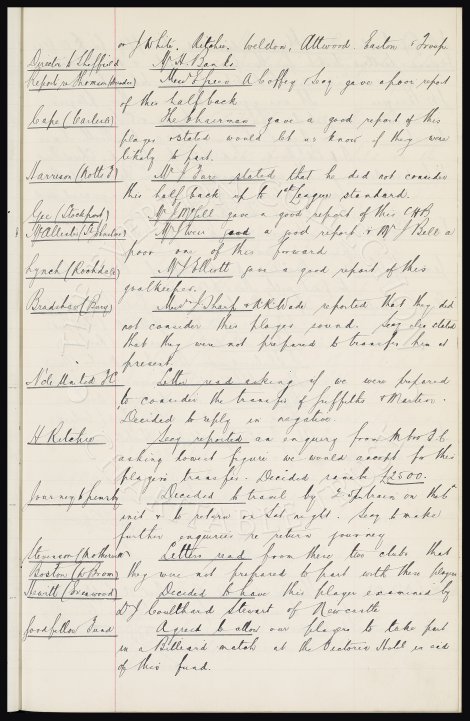 or J White. Ritchie. Weldon. Attwood. Easton & Troup
Director to Sheffield Mr H. Banks
Report re Thomson (Dundee) Messrs Green A Coffey & Secy gave a poor report
of this half back
Cape (Carlisle) The Chairman gave a good report of this
player & stated would let us know if they were
likely to part.
Harrison (Notts F) Mr J Fare stated that he did not consider
this half back up to 1st League standard.
Gee (Stockport) Mr J McGill gave a good report of this C H B
a good report & Mr J Bell a
poor one of this forward
Lynch (Rochdale) Mr J Elliott gave a good report of this
goalkeeper.
Bradshaw (Bury) Messrs J Sharp & R R Wade reported that they did
not consider this player sound. Secy also stated
that they were not prepared to transfer him at
present
N'cle United F.C Letter read asking if we were prepared
to consider the transfer of Griffiths & Martin.
Decided to reply in negative
H Ritchie Secy reported an enquiry from F.C
asking lowest figure we would accept for this
player's transfer. Decided £2500.
Journey to Decided to travel by train on the 6th
inst & to return on Sat night. Secy to make
further enquiries re return journey
Stevenson (Motherwell) Letters read from these two clubs that
Boston (W Brom) they were not prepared to part with these players
Hewitt Decided to have this player examined by
Dr J Coulthard Stewart of Newcastle
Goodfellow Fund Agreed to allow our players to take part
in a Billiard match at the Victoria Hotel in aid
of this fund.